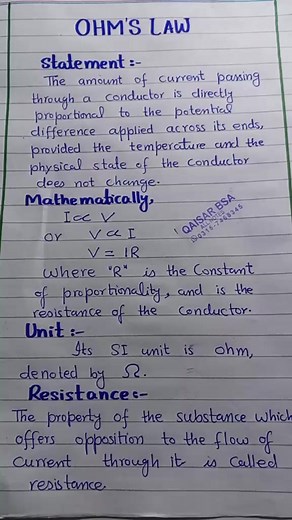 OHM'S LAW
Statement :-
The amount of current passing
through a conductor is directly
proportional to the potential
difference applied across its ends,
provided the temperature and the
physical state of the conductor
does not change.
Mathematically,
I ∝ V
or V ∝ I
V = IR
QAISAR BSA
Where "R" is the Constant
of proportionality, and is the
resistance of the Conductor.
Unit :-
Its SI unit is ohm,
denoted by Ω.
Resistance:-
The property of the substance which
offers opposition to the flow of
current through it is called
resistance.